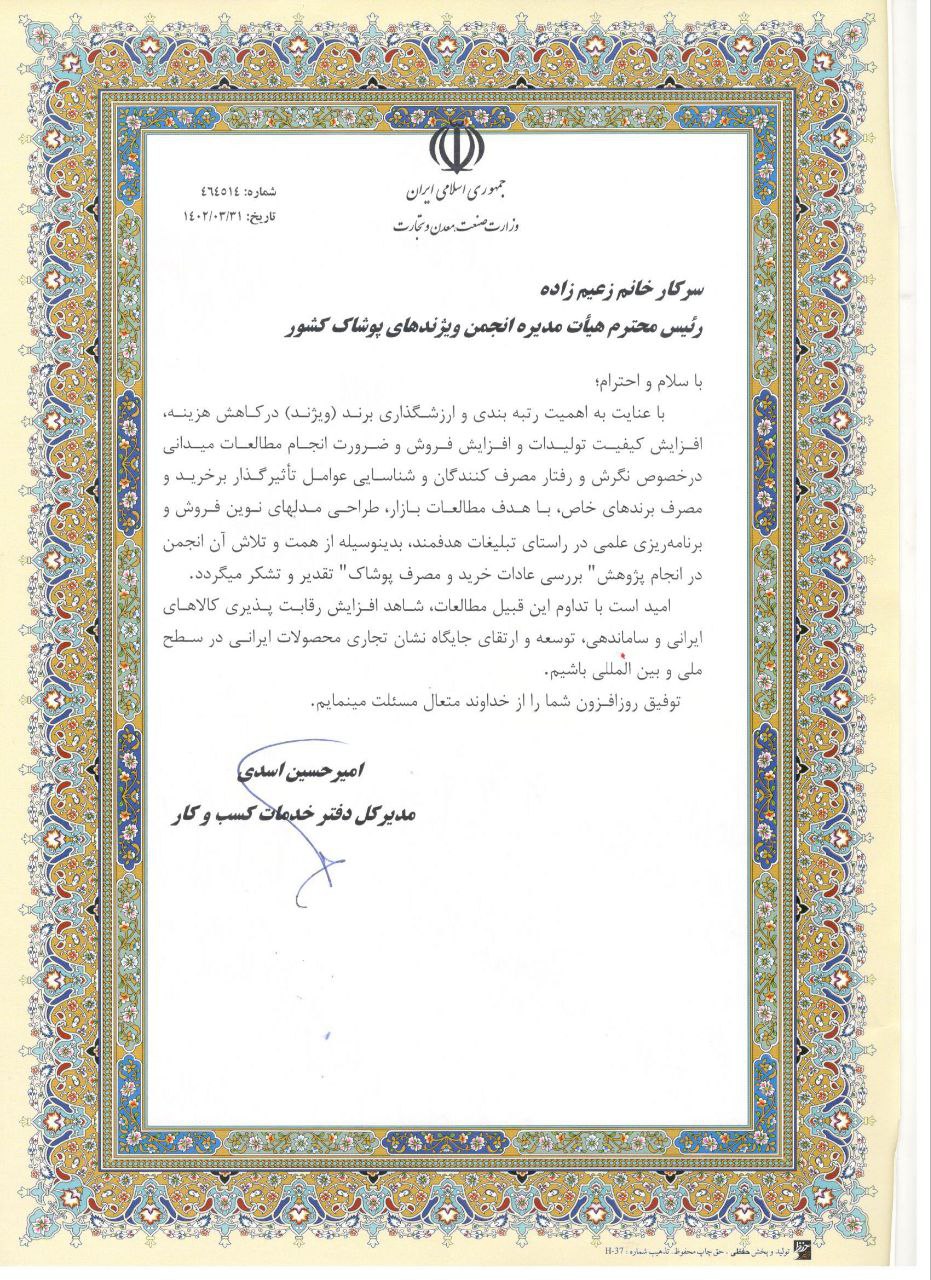 جمهوری اسلامی ایران
وزارت صنعت، معدن و تجارت
شماره: ۴۶۴۵۱۴
تاریخ: ۱۴۰۲/۰۳/۳۱
سرکار خانم زعیم زاده
رئیس محترم هیأت مدیره انجمن ویژندهای پوشاک کشور
با سلام و احترام؛
با عنایت به اهمیت رتبه بندی و ارزشگذاری برند (ویژند) درکاهش هزینه،
افزایش کیفیت تولیدات و افزایش فروش و ضرورت انجام مطالعات میدانی
درخصوص نگرش و رفتار مصرف کنندگان و شناسایی عوامل تأثیرگذار برخرید و
مصرف برندهای خاص، با هدف مطالعات بازار، طراحی مدلهای نوین فروش و
برنامه‌ریزی علمی در راستای تبلیغات هدفمند، بدینوسیله از همت و تلاش آن انجمن
در انجام پژوهش" بررسی عادات خرید و مصرف پوشاک" تقدیر و تشکر میگردد.
امید است با تداوم این قبیل مطالعات، شاهد افزایش رقابت پذیری کالاهای
ایرانی و ساماندهی، توسعه و ارتقای جایگاه نشان تجاری محصولات ایرانی در سطح
ملی و بین المللی باشیم.
توفیق روزافزون شما را از خداوند متعال مسئلت مینمایم.
امیرحسین اسدی
مدیرکل دفتر خدمات کسب و کار
تولید و پخش حفظی . حق چاپ محفوظ. تذهیب شماره : H-37